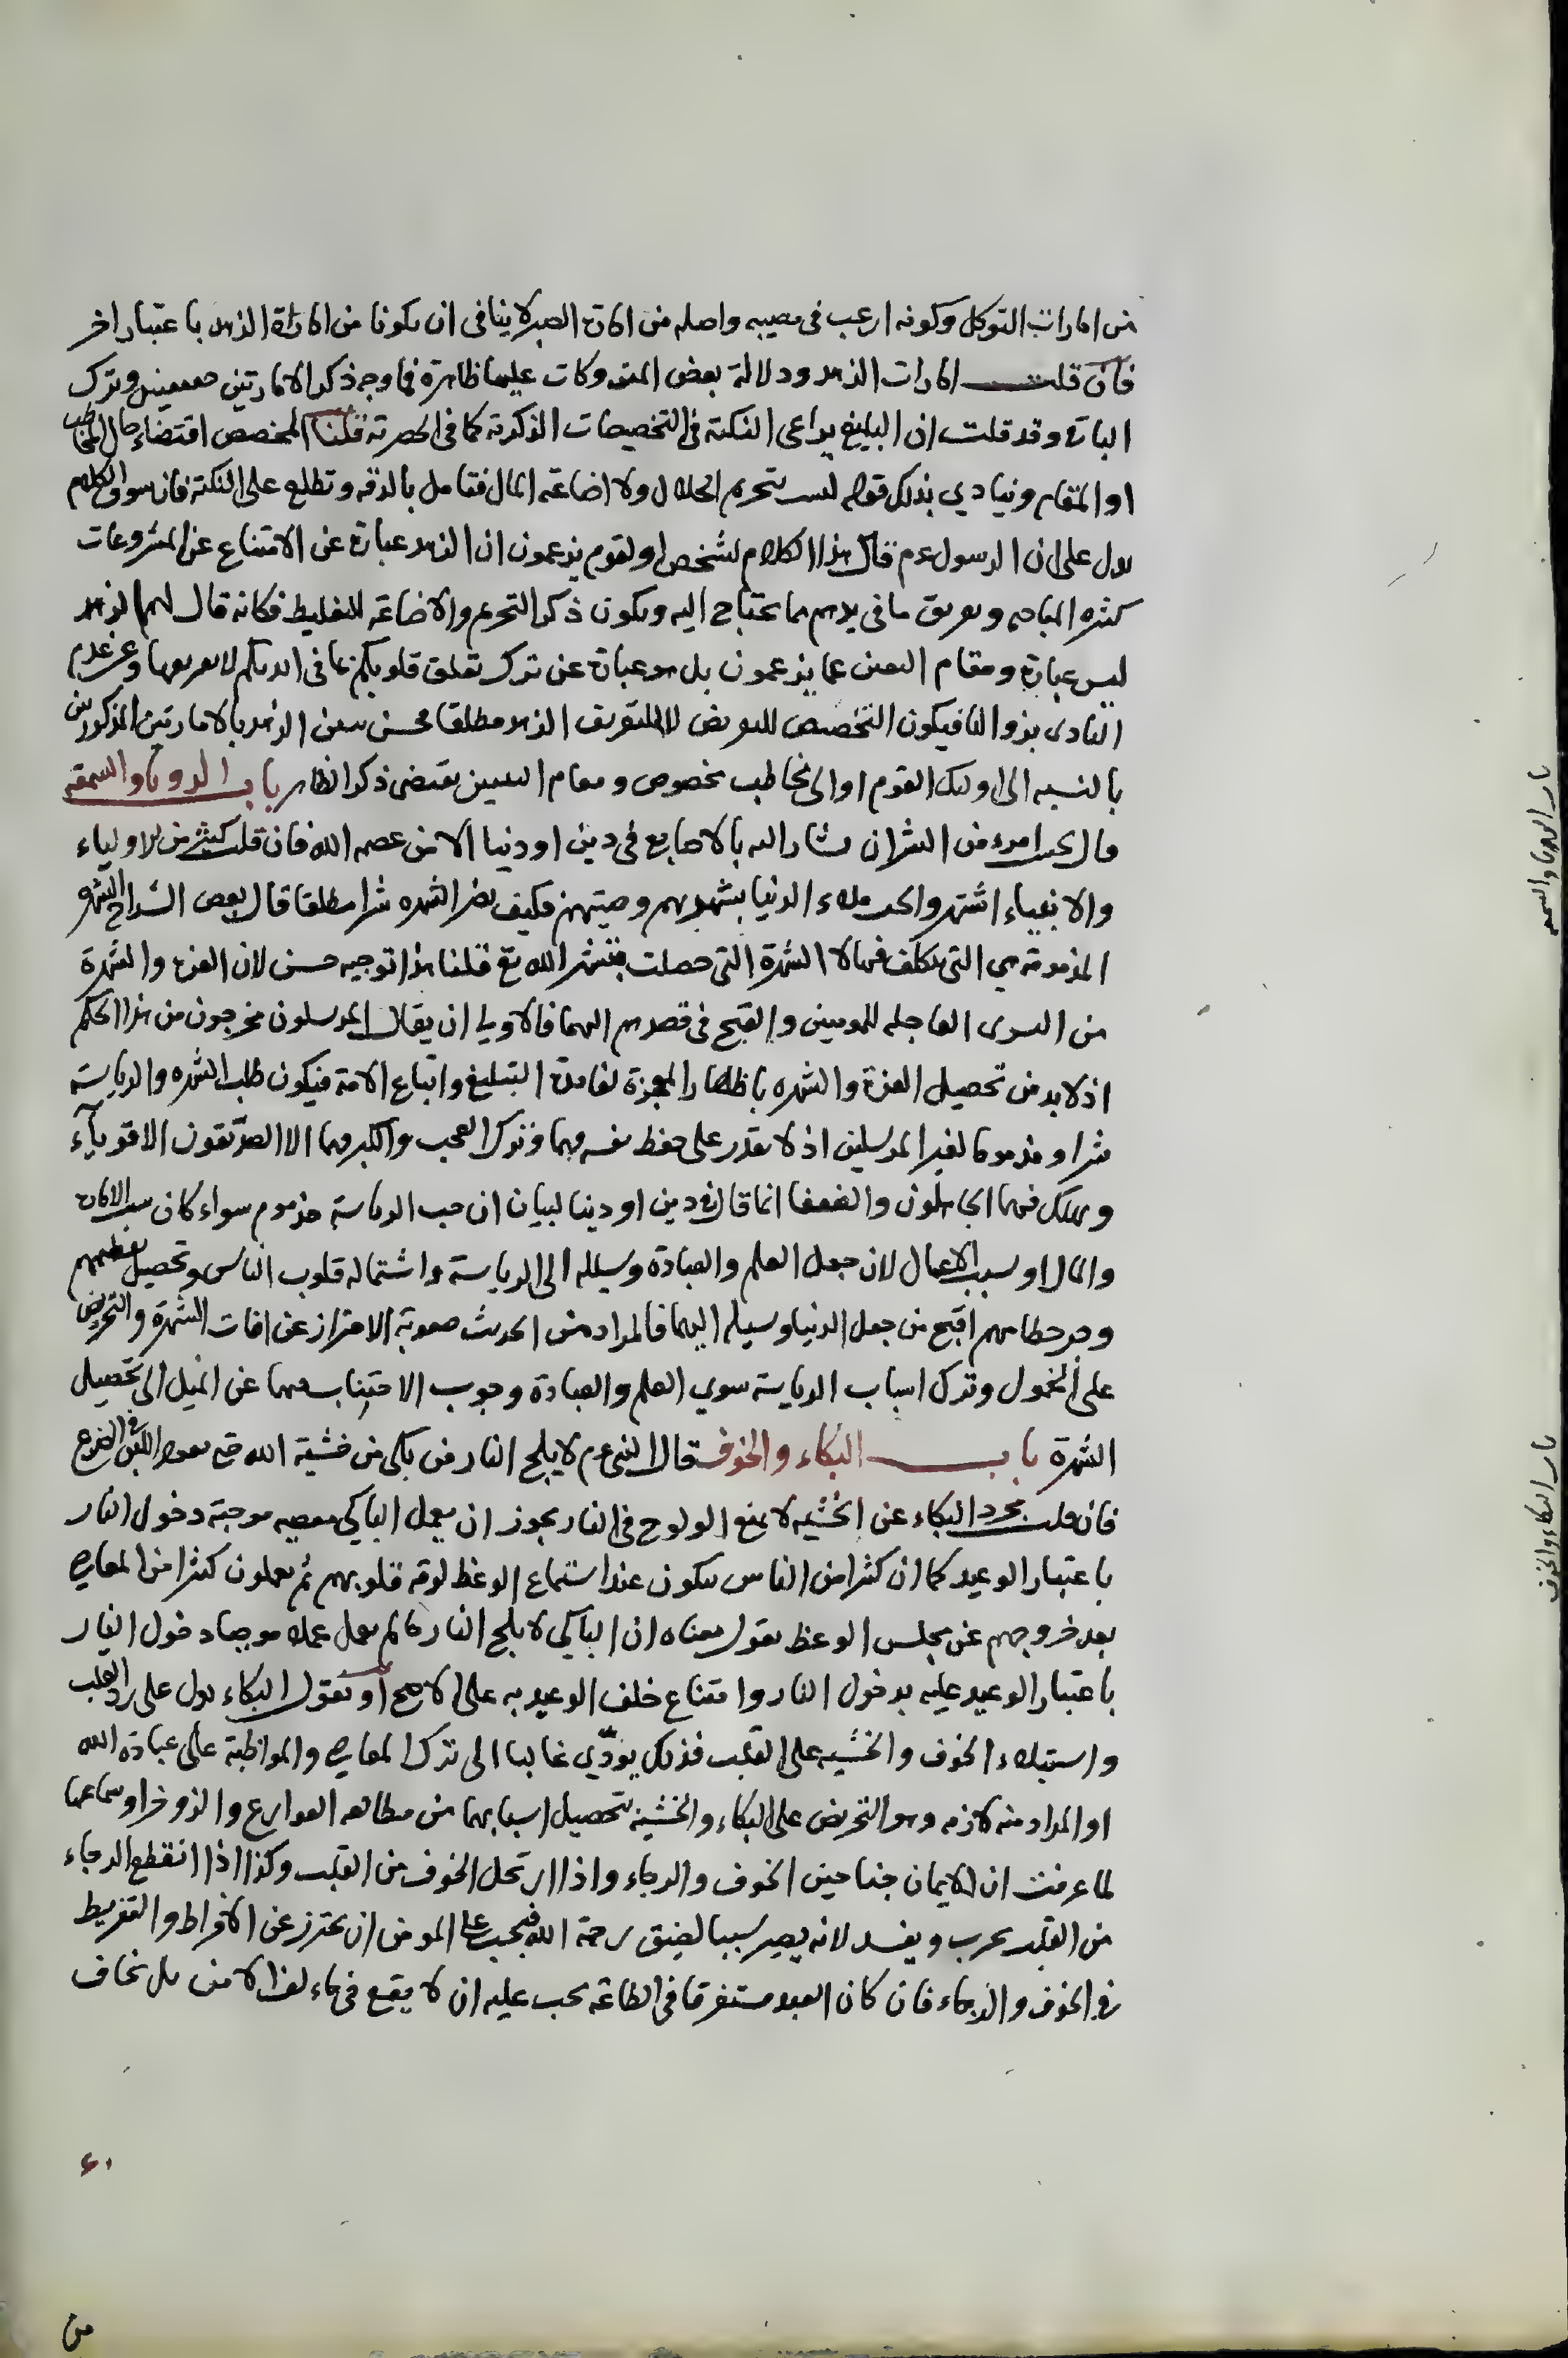 من امارات التوكل وكونه ارغب في مصيبه واصله من امارة الصبر لا ينافي ان يكونا من امارة الزهد باعتبار اخر
فان قلت امارات الزهد ودلالة بعض المتروكات عليها ظاهرة فما وجه ذكر الامارتين معينين وترك
الباقي وقد قلت ان البليغ يراعي النكتة في التخصيصات الذكرية كما في الحصرية قلنا المخصص اقتضاء حال المخاطب
او المقام وينادي بذلك قوله ليست بتحريم الحلال ولا اضاعة المال فتأمل بالدقة وتطلع على النكتة فان سواق الكلام
يدل على ان الرسول عم قال هذا الكلام لشخص او لقوم يزعمون ان الزهد عبارة عن الامتناع عن المشروعات
كثرة المباحه وتفريق ما في يدهم مما يحتاج اليه ويكون ذكر التحريم والاضاعة للتغليظ فكانه قال لهم الزهد
ليس عبارة ومقام عما يزعمون بل هو عبارة عن ترك تعلق قلوبكم بما في ايديكم لا تفريقها وعن عدم
التأذي بزوالها فيكون التخصيص للتعريض لا لتعريف الزهد مطلقا بالامارتين المذكورتين
بالنسبه الى اولئك القوم او الى مخاطب مخصوص ومقام التعيين يقتضي ذكر الظاهر باب الريا والسمعه
قال بحسب امرء من الشر ان يشار اليه بالاصابع في دين او دنيا الا من عصمه الله فان قلت كثير من الاولياء
والانبياء اشتهروا الدنيا بشهرتهم وصيتهم فكيف الشهره شرا مطلقا قال بعض الشراح الشهرة
المذمومة هي التي يتكلف فيها لا الشهرة التي حصلت بنشر الله تع قلنا هذا توجيه حسن لان العزة والشهرة
من البشرى العاجله للمومنين والقبح في قصدهم اليهما فالاولى ان يقال المرسلون مخرجون من هذا الحكم
اذ لا بد من تحصيل العزة والشهره باظهار المعجزة لفائدة التبليغ واتباع الامة فيكون طلب الشهره والرياسة
شرا ومذموما لغير المرسلين اذ لا يقدر على حفظ نفسه فيهما وترك العجب والكبر فيهما الا الصديقون الاقوياء
ويهلك فيهما الجاهلون والضعفا انما قال في دين او دنيا لبيان ان حب الرياسة مذموم سواء كان
والمال او سبب الاعمال لان جعل العلم والعبادة وسيلة الى الرياسة واستمالة قلوب الناس وتحصيل تعظيمهم
وجر حطامهم اقبح من جعل الدنيا وسيلة اليهما فالمراد من الحديث صعوبة الاحتراز عن افات الشهرة والتحريض
على الخمول وترك اسباب الرياسة سوى العلم والعبادة وجوب الاجتناب فيهما عن الميل الى تحصيل
الشهرة باب البكاء والخوف قال النبي عم لا يلج النار من بكى من خشية الله حتى يعود اللبن في الضرع
فان قلت مجرد البكاء عن الخشيه لا يمنع الولوج في النار يجوز ان يعمل الباكي معصيه موجبة دخول النار
باعتبار الوعيد كما ان كثيرا من الناس يبكون عند استماع الوعظ لرقة قلوبهم ثم يعملون كثيرا من المعاصي
بعد خروجهم عن مجلس الوعظ نقول معناه ان الباكي لا يلج النار ما لم يعمل عمله موجبا دخول النار
باعتبار الوعيد عليه بدخول النار وامتناع خلف الوعيد به على الاصح او نقول البكاء يدل على القلب
واستيلاء الخوف والخشيه على القلب فذلك يؤدي غالبا الى ترك المعاصي والمواظبة على عبادة الله
او المراد منه لازمه وهو التحريض على البكاء والخشية بتحصيل اسبابهما من مطالعه القوارع والزواجر او سماعها
لما عرفت ان للايمان جناحين الخوف والرجاء واذا ارتحل الخوف من القلب وكذا اذا انقطع الرجاء
من القلب يخرب ويفسد لانه يصير سببا لضيق رحمة الله فيجب على المومن ان يحترز عن الافراط والتفريط
في الخوف والرجاء فان كان العبد مستغرقا في الطاعة يجب عليه ان لا يقع في الامن بل يخاف
من
باب الريا والسمعه
باب البكاء والخوف